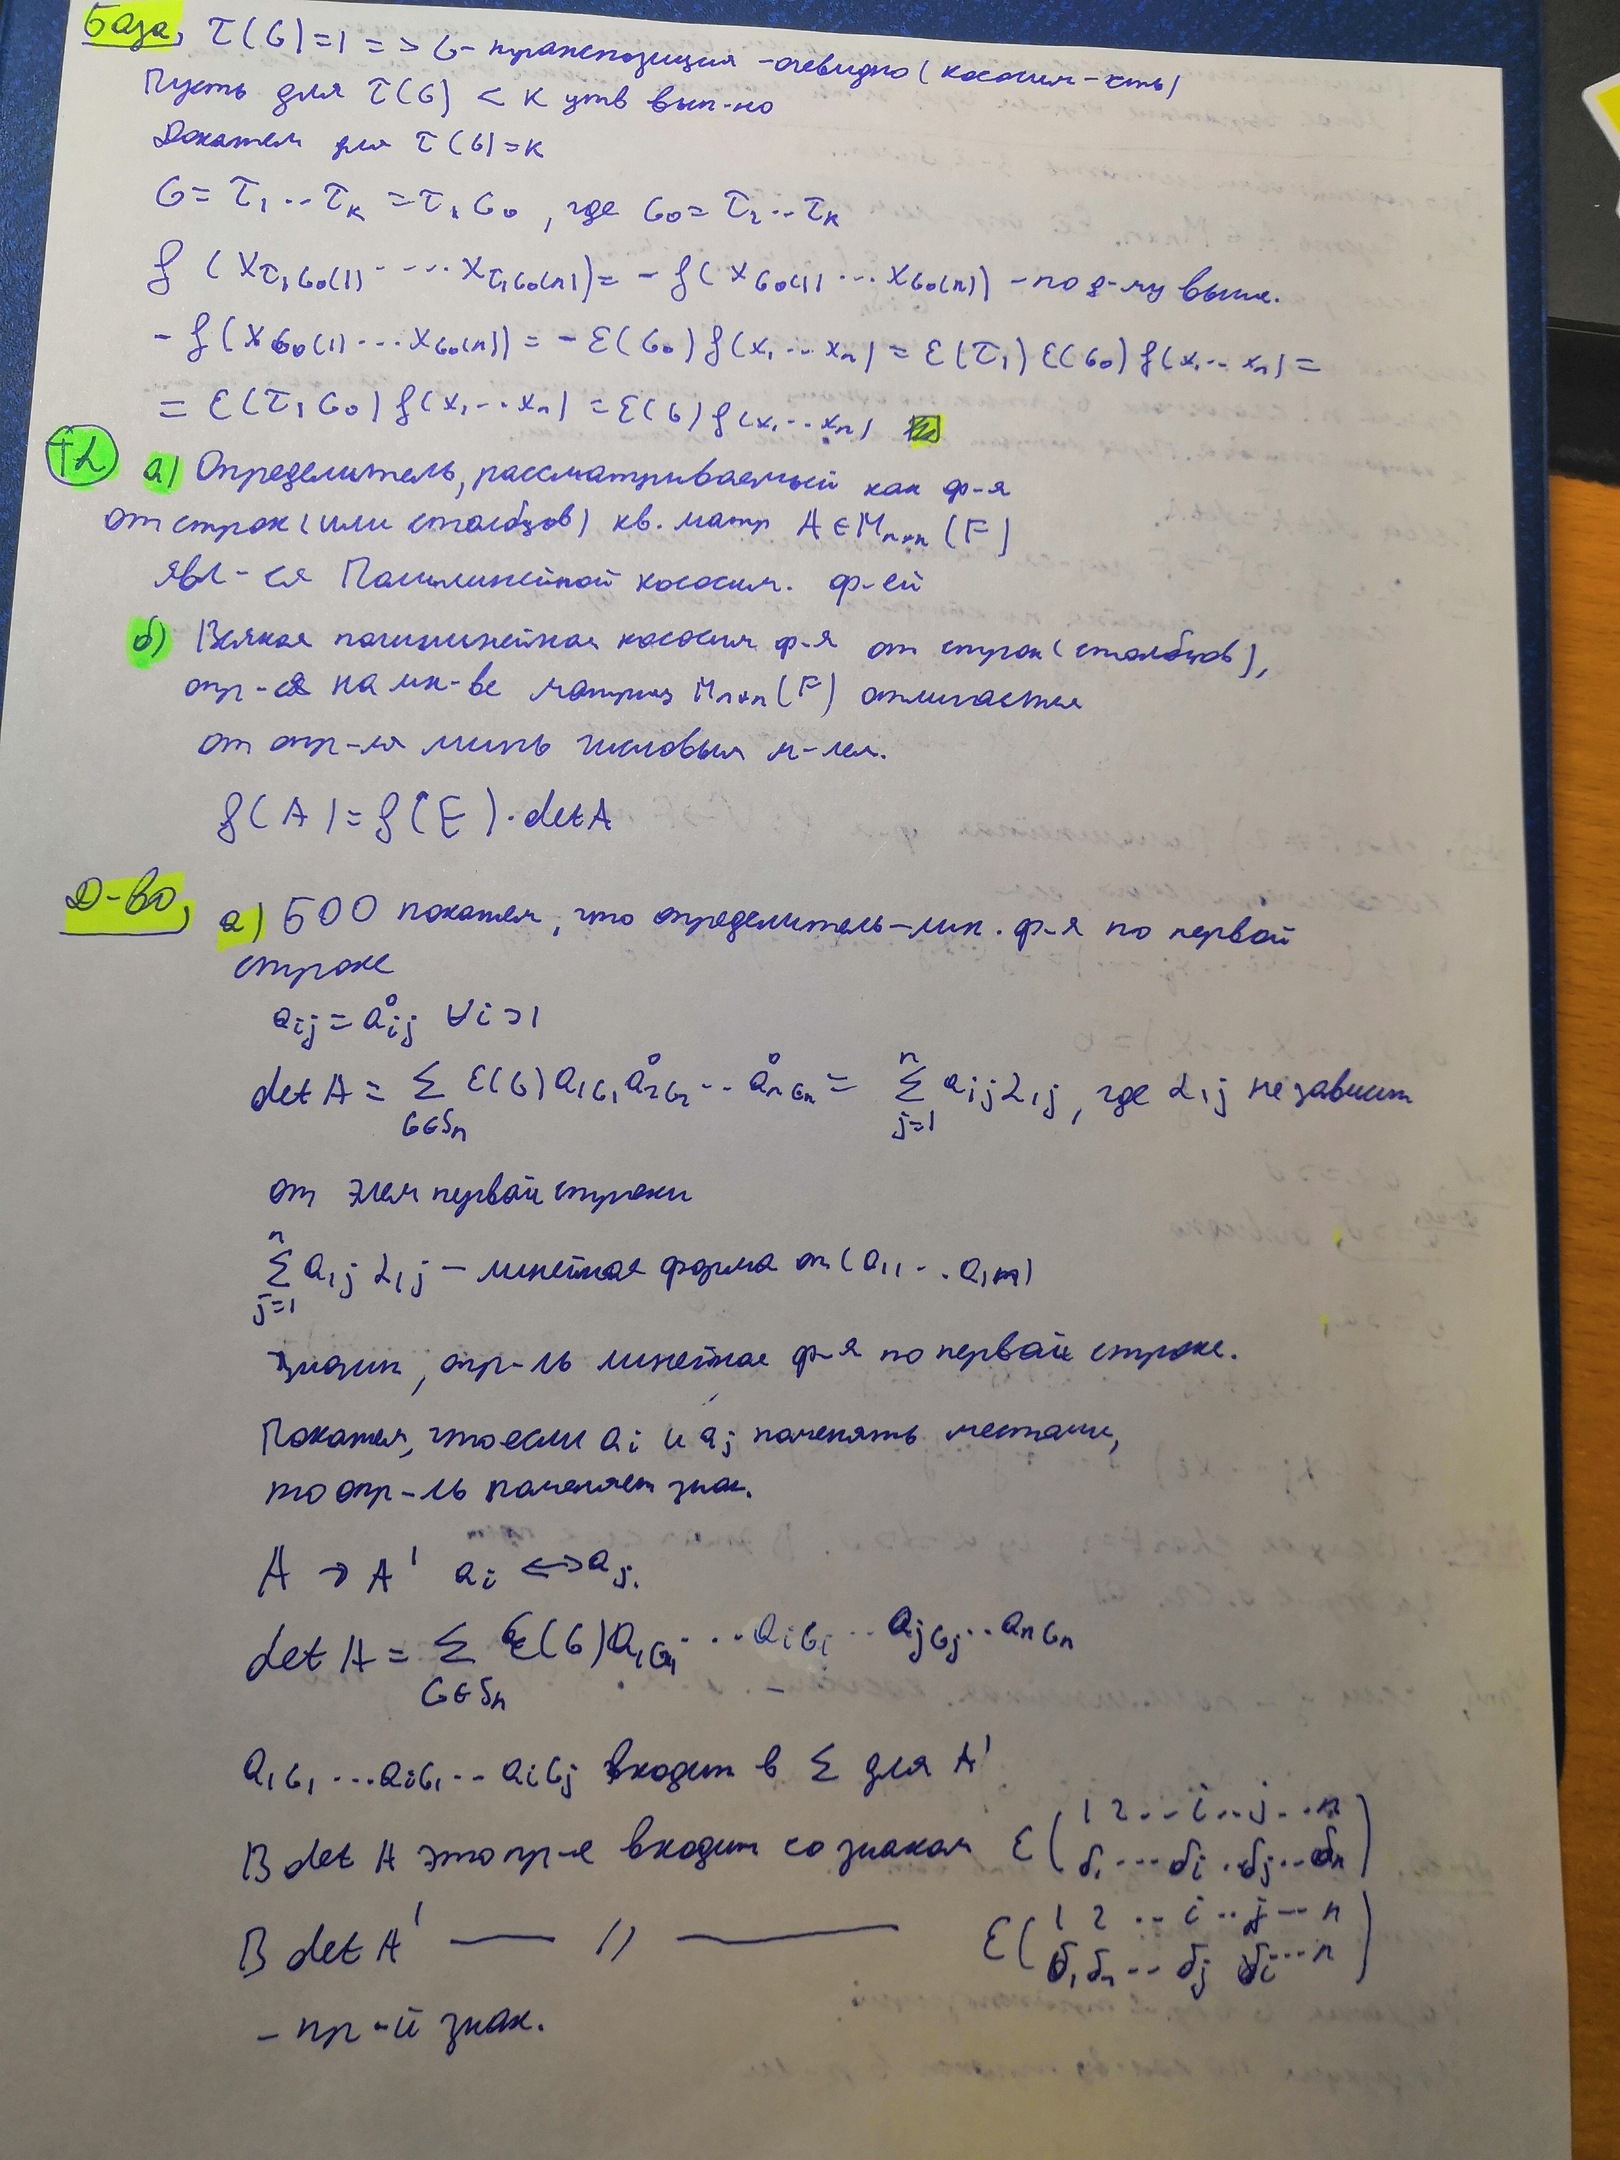 База, τ(σ)=1 => σ- транспозиция -очевидно (кососим-сть)
Пусть для τ(σ) < k утв вып-но
Докажем для τ(σ)=k
σ= τ₁..τₖ =τ₁σ₀, где σ₀= τ₂..τₖ
f (x_{τ₁σ₀(1)} ···· x_{τ₁σ₀(n)})= -f(x_{σ₀(1)} ··· x_{σ₀(n)}) -по д-му выше.
-f(x_{σ₀(1)} ··· x_{σ₀(n)}) = -ε(σ₀) f(x₁ ··· xₙ) = ε(τ₁) ε(σ₀) f(x₁ ·· xₙ) =
= ε(τ₁σ₀) f(x₁ ·· xₙ) = ε(σ) f(x₁ ·· xₙ)
а) Определитель, рассматриваемый как ф-я
от строк (или столбцов) кв. матр A ∈ M_{n×n} (F)
явл-ся Полилинейной кососим. ф-ей
б) Всякая полилинейная кососим ф-я от строк (столбцов),
опр-ая на мн-ве матриц M_{n×n}(F) отличается
от опр-ля лишь числовым м-лем.
f(A)=f(E)·detA
Д-во, а) БОО покажем, что определитель-лин. ф-я по первой
строке
a_{ij} = å_{ij} ∀i>1
det A = Σ_{σ∈Sₙ} ε(σ) a_{1σ₁} å_{2σ₂} ·· å_{nσₙ} = Σ_{j=1}^{n} a_{1j} α_{1j}, где α_{1j} не зависит
от элем первой строки
Σ_{j=1}^{n} a_{1j} α_{1j} - линейная форма от (a₁₁ ·· a_{1n})
Значит, опр-ль линейная ф-я по первой строке.
Покажем, что если a_i и a_j поменять местами,
то опр-ль поменяет знак.
A → A' a_i ⟷ a_j.
det A = Σ_{σ∈Sₙ} ε(σ) a_{1σ₁} ··· a_{iσ_i} ·· a_{jσ_j} ·· a_{nσₙ}
a_{1σ₁} ··· a_{iσ_i} ·· a_{iσ_j} входит в Σ для A'
В det A это пр-е входит со знаком ε( 1 2 ·· i ·· j ·· n
σ₁ ··· σ_i ·· σ_j ·· σₙ )
В det A' — // — ε( 1 2 ·· i ·· j ·· n
σ₁ σₙ ·· σ_j σ_i ··· n )
- пр-й знак.